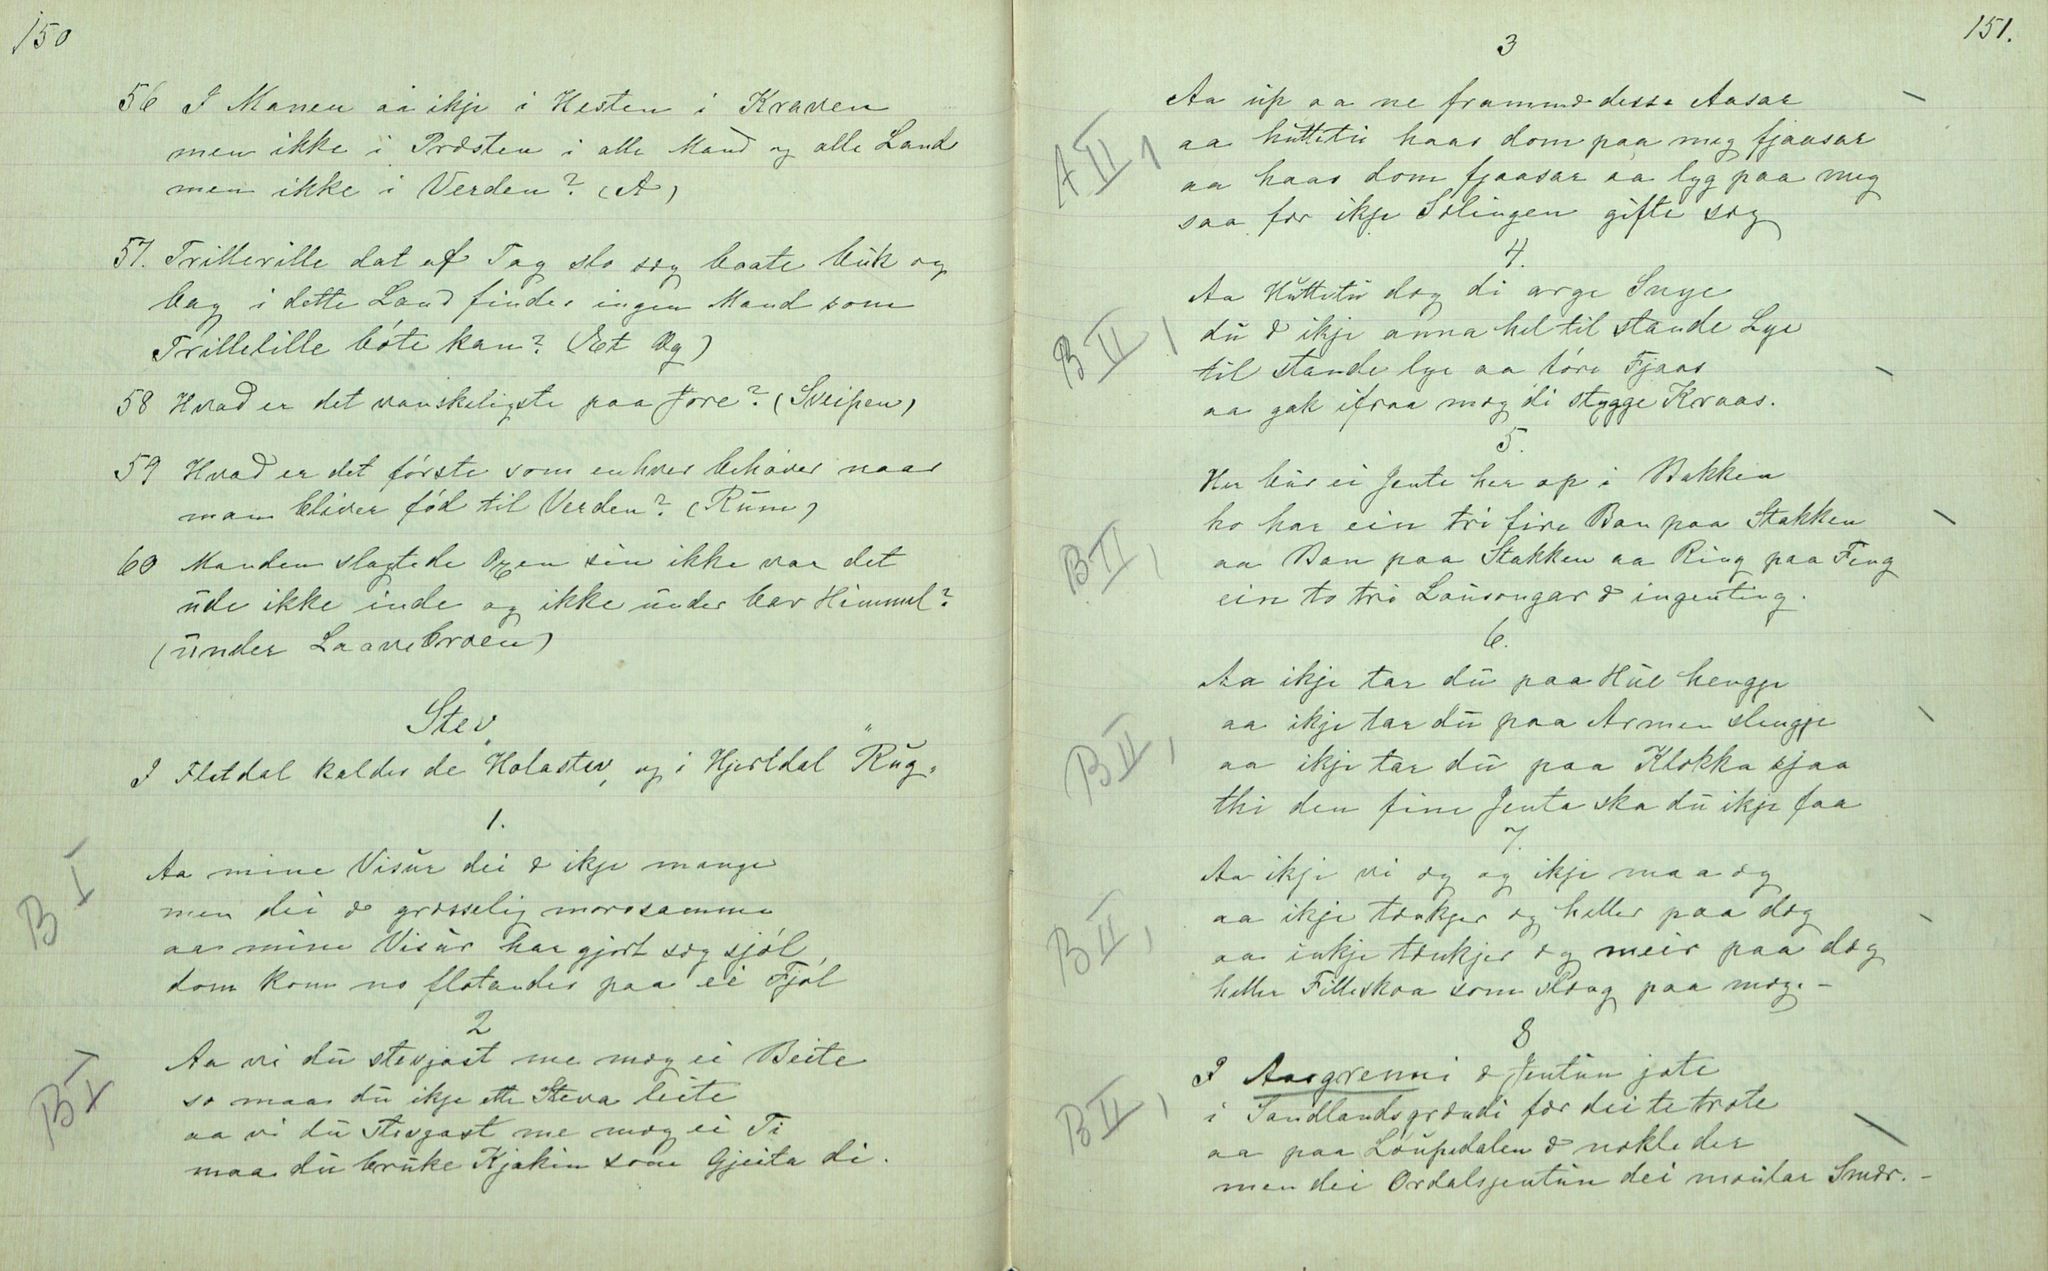 150
56 I Manen aa ikje i Hesten i Kraven
men ikke i Præsten i alle Mand og alle Land
men ikke i Verden? (A)
57. Trillerille dat af Tag slo sæg baate buk og
bag i dette Land findes ingen Mand som
Trillelille bóte kan? (Et Æg)
58 Hvad er det vanskeligste paa Jore? (Sveipen)
59 Hvad er det fórste som enhver behóver naar
man bliver fód til Verden? (Rum)
60 Manden slagtede Oxen sin ikke var det
ude ikke inde og ikke under bar Himmel?
(under Laavebroen)
Stev
I Flatdal kaldes de "Holastev, og i Hjertdal "Rug-
1.
B I
Aa mine Visur dei æ ikje mange
men dei æ græsselig morosamme
aa mine Visur har gjort sæg sjól
dom kom no flotandes paa ei Fjól
2
B I
Aa vi du stevjast me mæg ei Beite
so maa du ikje ette Steva leite
aa vi du stevjast me mæg ei Ti
maa du bruke Kjakin som Gjeita di.
151.
3
A II, 1
Aa up aa ne framme desse Aasar
aa huttetu haar dom paa meg fjaasar
aa haar dom fjaasar aa lyg paa meg
saa fær ikje Sólingen gifte sæg
4.
B II, 1
Aa Huttetu dæg di arge Snye
du æ ikje anna hel til stande Lye
til stande lye aa tóre Fjaas
aa gak ifraa mæg di stygge Kraas.
5.
B II,
Her bur ei Jente her op i Bakken
ho har ein tri fire Ban paa Stakken
aa Ban paa Stakken aa Ring paa Fing
ein to tri Lausongar æ ingenting.
6.
B II,
Aa ikje tar du paa Hue hengje
aa ikje tar du paa Armen slengje
aa ikje tar du paa Klokka sjaa
thi den fine Jenta ska du ikje faa
7.
B II,
Aa ikje vi æg og ikje maa æg
aa ikje tænkjer æg heller paa dæg
aa inkje tænkjer æg meir paa dæg
heller Filleskoa som slæng paa mæg. -
8
B II,
I Aasgrenni æ Jentun jote
i Sandlandsgrændi fær dei te trote
aa paa Loupedalen æ nokle der
men dei Ordalsjentun dei moular Smær. -